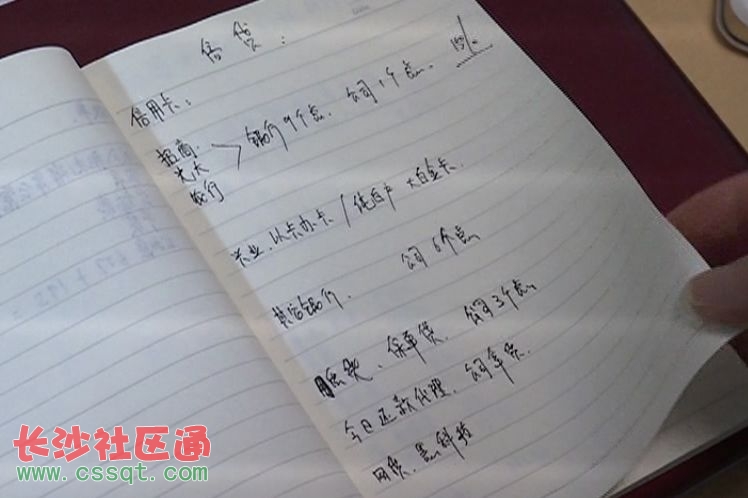 信贷：
信用卡：
招商
光大 > 银行9个点. 公司1个点. 10%
发行
兴业. 以卡办卡/纯白户 大白金卡.
其它银行. 公司6个点
房贷、保单贷. 公司3个点
今日还款代理.
网贷. 黑科技
长沙社区通
www.cssqt.com